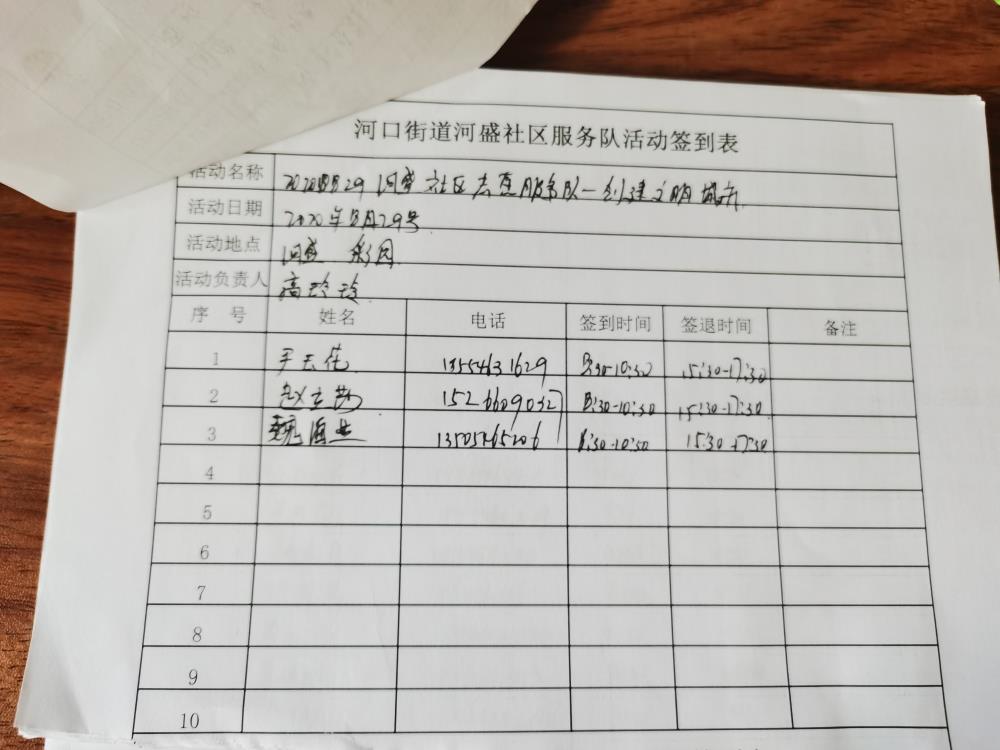 河口街道河盛社区服务队活动签到表
活动名称 2020 8月29 河盛社区志愿服务队一创建文明城市
活动日期 2020年8月29号
活动地点 河盛
活动负责人 高玲玲
序号 姓名 电话 签到时间 签退时间 备注
1 13554631629 8:30-10:30 15:30-17:30
2 15266609032 8:30-10:30 15:30-17:30
3 魏海 8:30-10:30 15:30-17:30
4
5
6
7
8
9
10